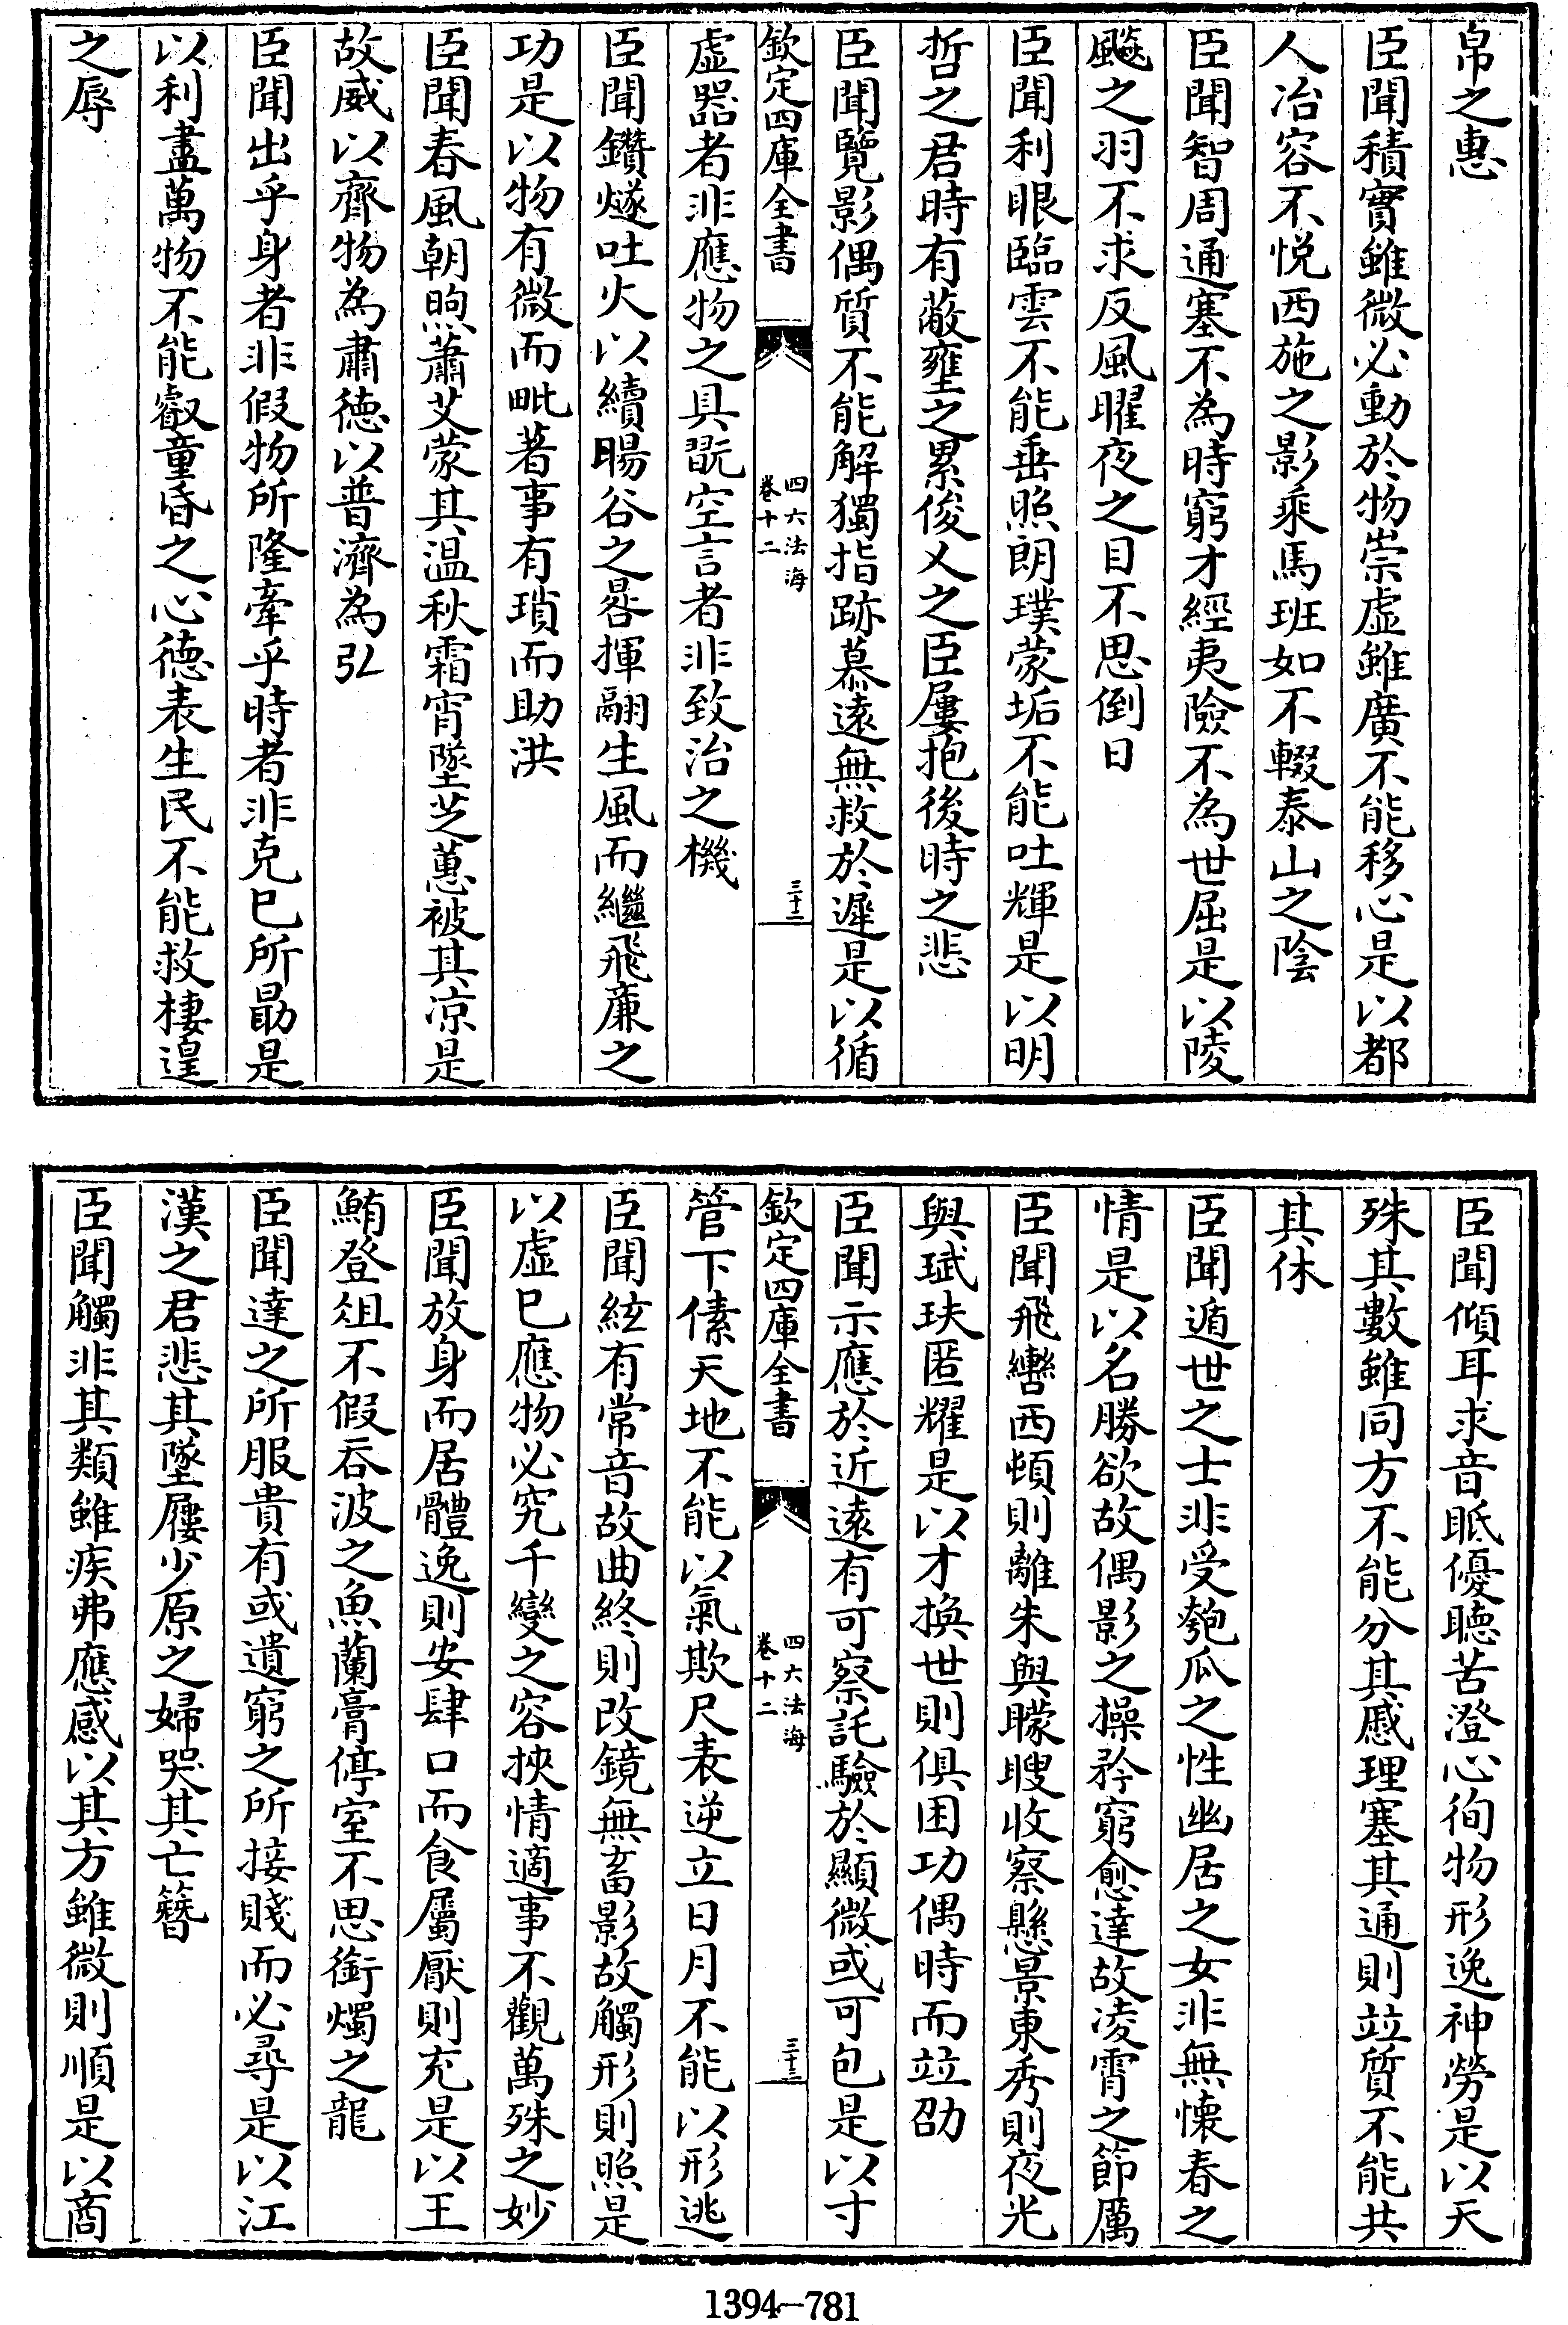 帛之惠
臣聞積實雖微必動於物崇虚雖廣不能移心是以都
人冶容不悦西施之影乘馬班如不輟泰山之陰
臣聞智周通塞不為時窮才經夷險不為世屈是以陵
飈之羽不求反風曜夜之目不思倒日
臣聞利眼臨雲不能垂照朗璞蒙垢不能吐輝是以明
哲之君時有蔽壅之累俊乂之臣屢抱後時之悲
臣聞覽影偶質不能解獨指跡慕遠無救於遲是以循
欽定四庫全書
四六法海
卷十二
三十二
虚器者非應物之具翫空言者非致治之機
臣聞鑽燧吐火以續暘谷之晷揮翮生風而繼飛廉之
功是以物有微而毗著事有瑣而助洪
臣聞春風朝煦蕭艾蒙其温秋霜宵墜芝蕙被其凉是
故威以齊物為肅德以普濟為弘
臣聞出乎身者非假物所隆牽乎時者非克已所勗是
以利盡萬物不能叡童昏之心德表生民不能救棲遑
之辱
臣聞傾耳求音眡優聽苦澄心徇物形逸神勞是以天
殊其數雖同方不能分其慼理塞其通則竝質不能共
其休
臣聞遁世之士非受匏瓜之性幽居之女非無懷春之
情是以名勝欲故偶影之操矜窮愈達故凌霄之節厲
臣聞飛轡西頓則離朱與矇瞍收察懸景東秀則夜光
與珷玞匿耀是以才換世則俱困功偶時而竝劭
臣聞示應於近遠有可察託驗於顯微或可包是以寸
欽定四庫全書
四六法海
卷十二
三十三
管下傃天地不能以氣欺尺表逆立日月不能以形逃
臣聞絃有常音故曲終則改鏡無畜影故觸形則照是
以虚已應物必究千變之容挾情適事不觀萬殊之妙
臣聞放身而居體逸則安肆口而食屬厭則充是以王
鮪登俎不假吞波之魚蘭膏停室不思銜燭之龍
臣聞達之所服貴有或遺窮之所接賤而必尋是以江
漢之君悲其墜屨少原之婦哭其亡簪
臣聞觸非其類雖疾弗應感以其方雖微則順是以商
1394—781